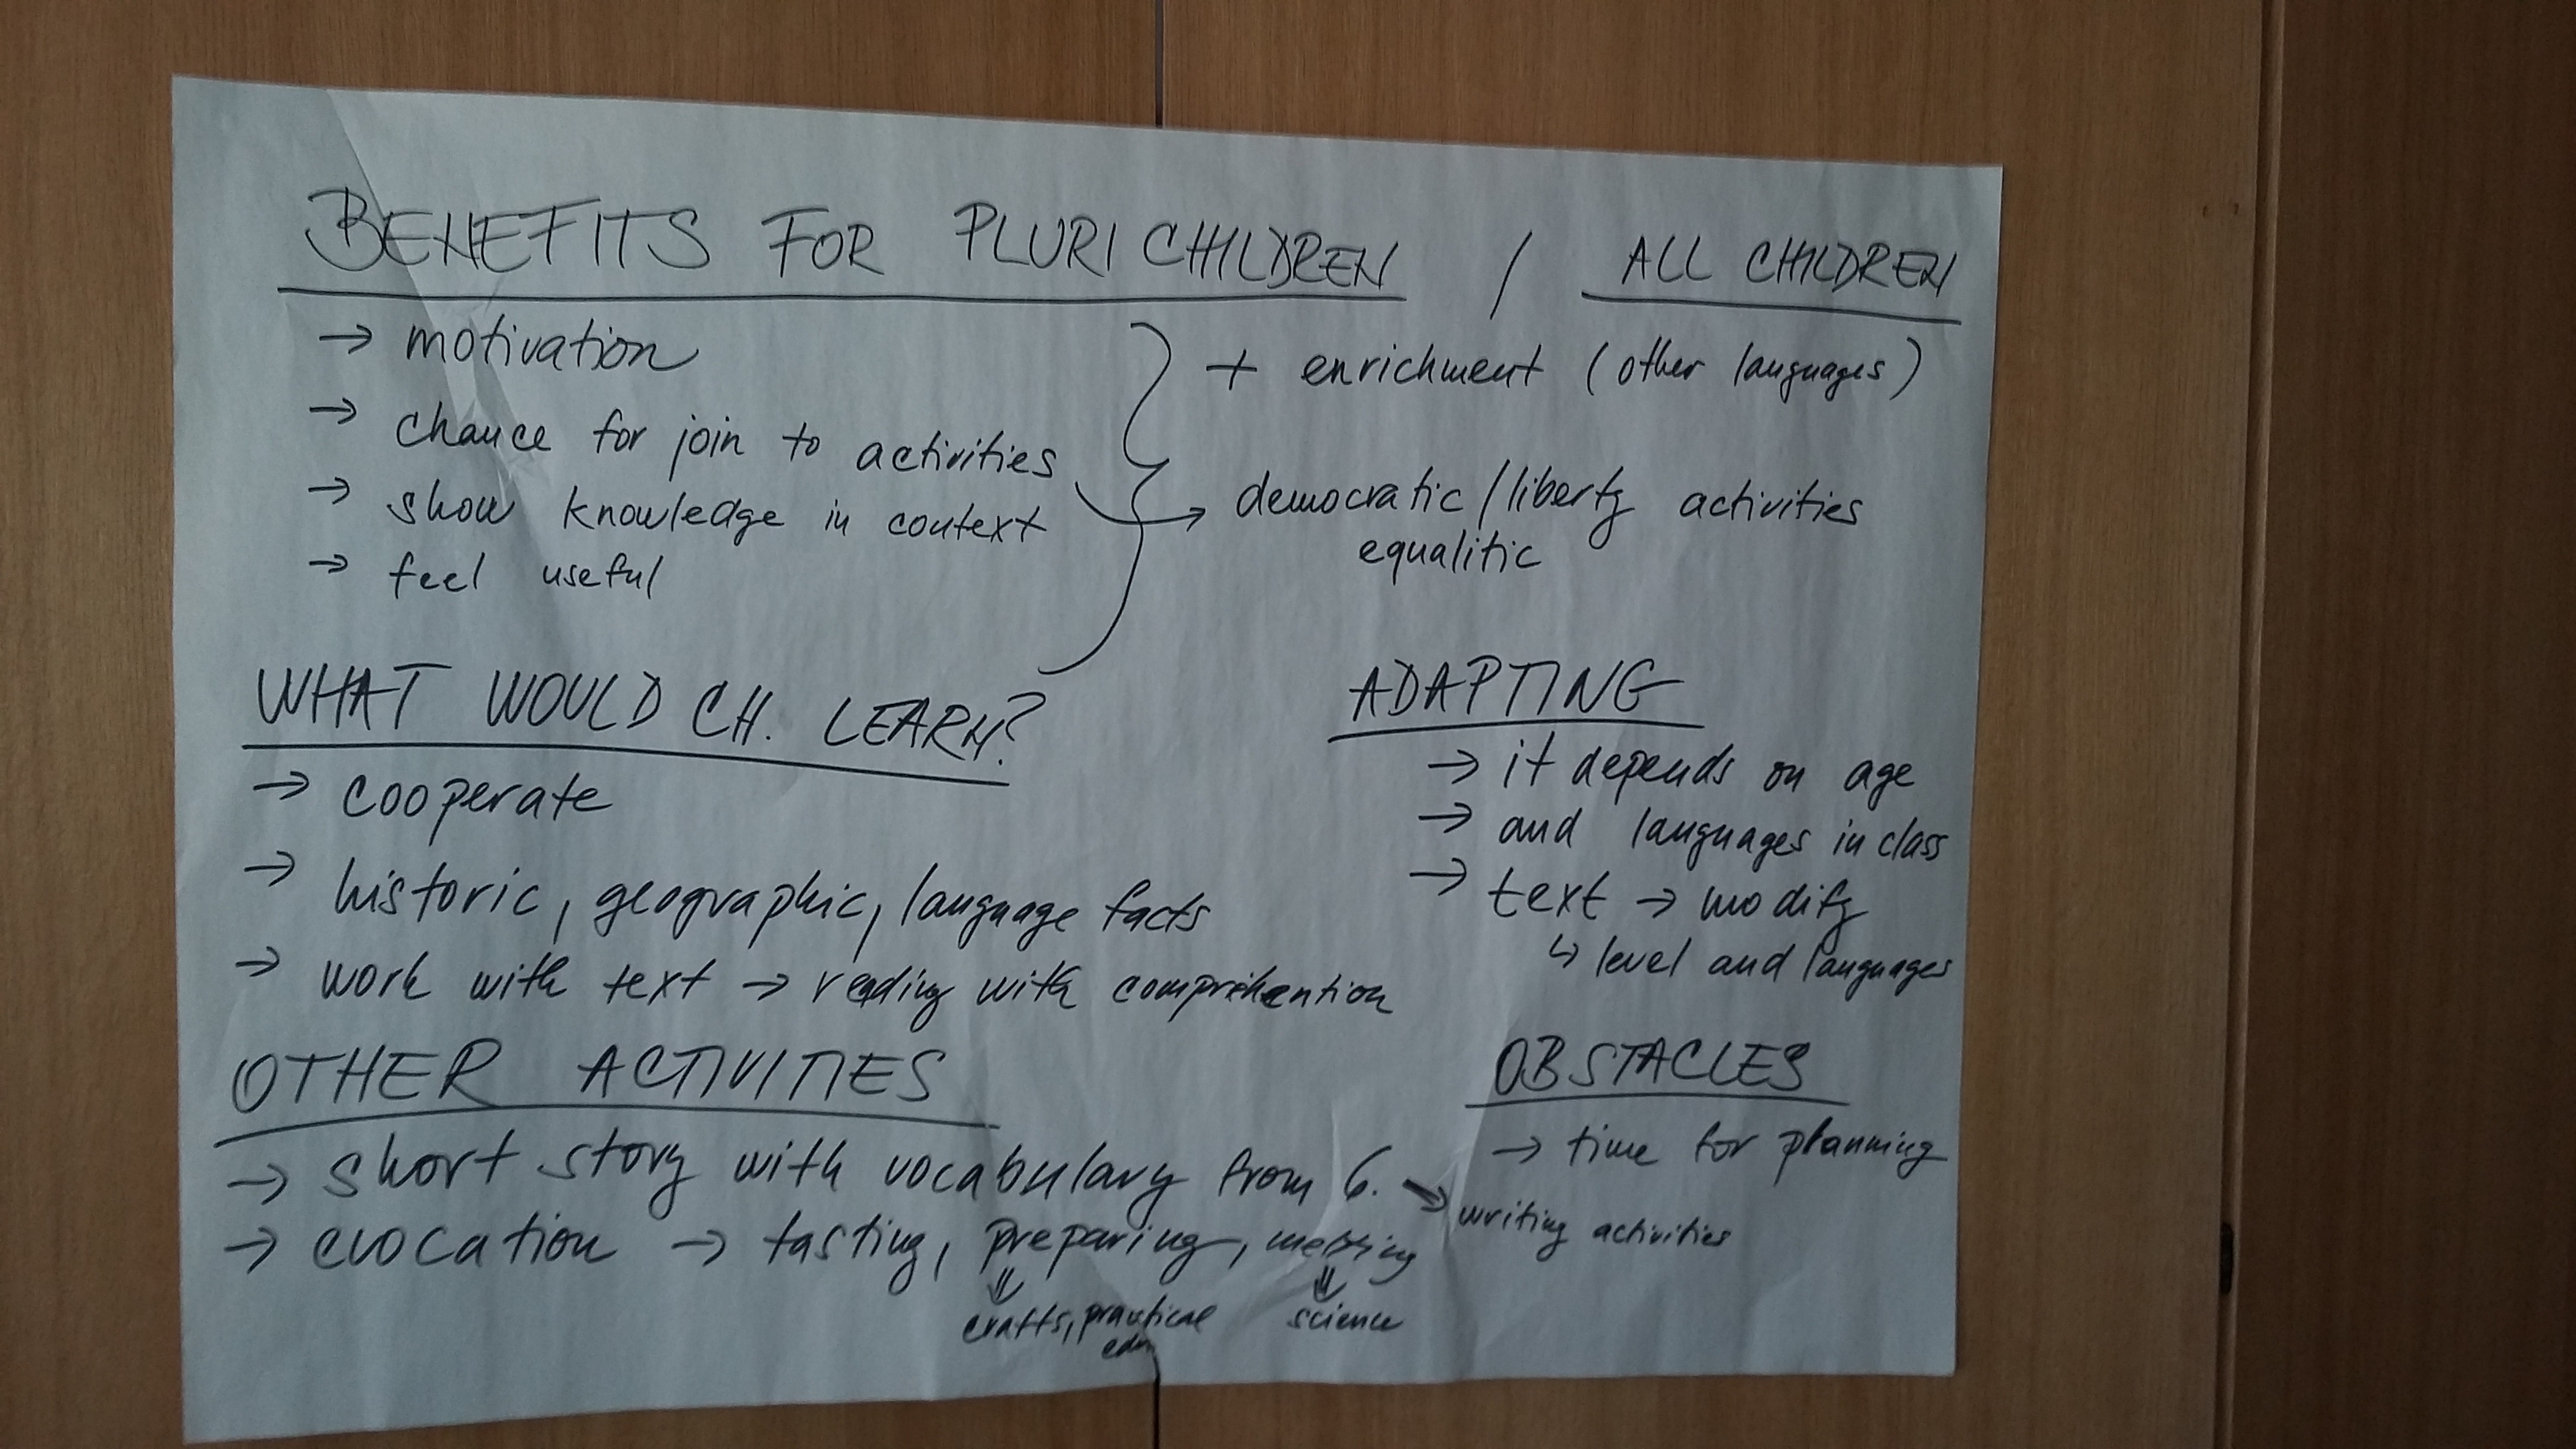 BENEFITS FOR PLURI CHILDREN / ALL CHILDREN
→ motivation
→ chance for join to activities
→ show knowledge in context
→ feel useful
+ enrichment (other languages)
→ democratic/liberty activities
equalitic
WHAT WOULD CH. LEARN?
→ cooperate
→ historic, geographic, language facts
→ work with text → reading with comprehention
ADAPTING
→ it depends on age
→ and languages in class
→ text → modify
↳ level and languages
OTHER ACTIVITIES
→ short story with vocabulary from 6. → writing activities
→ evocation → tasting, preparing,
⇓ crafts, practical
⇓ science
OBSTACLES
→ time for planning